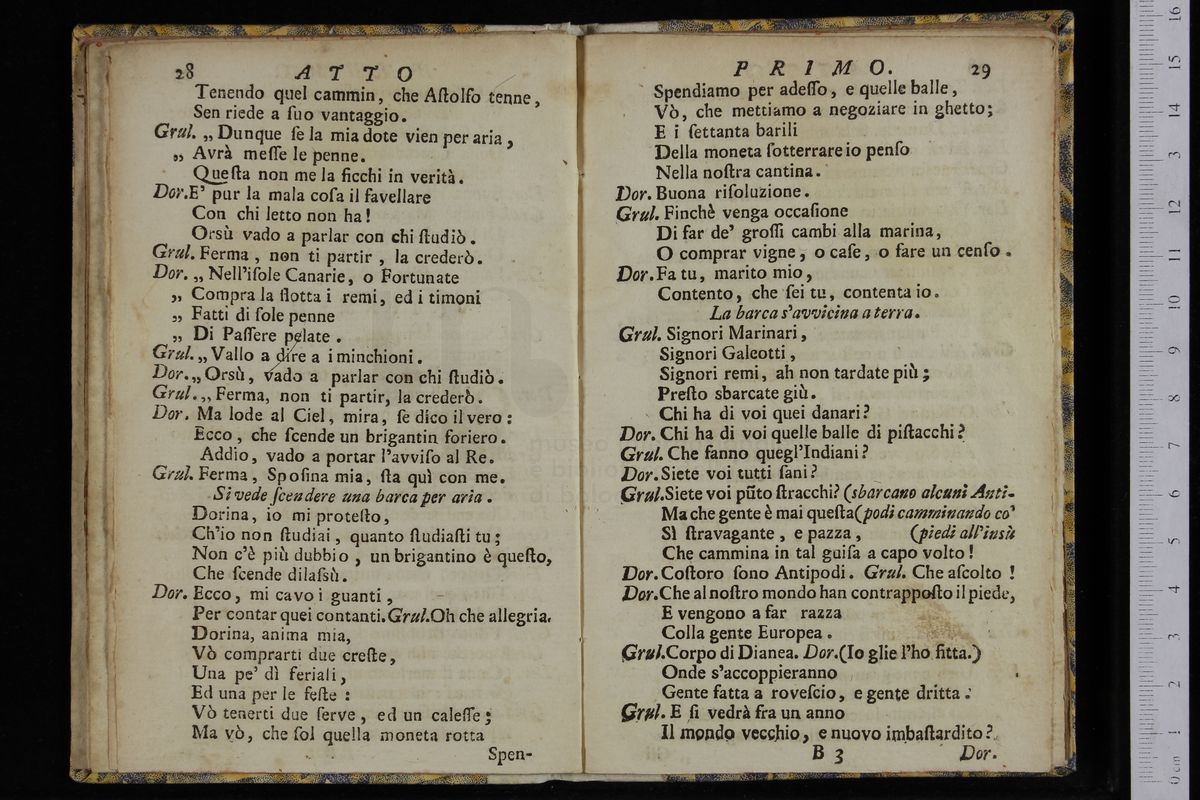 28 ATTO
Tenendo quel cammin, che Aſtolfo tenne,
Sen riede a ſuo vantaggio.
Grul. „ Dunque ſe la mia dote vien per aria,
„ Avrà meſſe le penne.
Queſta non me la ficchi in verità.
Dor. E' pur la mala coſa il favellare
Con chi letto non ha!
Orsù vado a parlar con chi ſtudiò.
Grul. Ferma, non ti partir, la crederò.
Dor. „ Nell'iſole Canarie, o Fortunate
„ Compra la flotta i remi, ed i timoni
„ Fatti di ſole penne
„ Di Paſſere pelate.
Grul. „ Vallo a dire a i minchioni.
Dor. „ Orsù, vado a parlar con chi ſtudiò.
Grul. „ Ferma, non ti partir, la crederò.
Dor. Ma lode al Ciel, mira, ſe dico il vero:
Ecco, che ſcende un brigantin foriero.
Addio, vado a portar l'avviſo al Re.
Grul. Ferma, Spoſina mia, ſta quì con me.
Si vede ſcendere una barca per aria.
Dorina, io mi proteſto,
Ch'io non ſtudiai, quanto ſtudiaſti tu;
Non c'è più dubbio, un brigantino è queſto,
Che ſcende dilaſsù.
Dor. Ecco, mi cavo i guanti,
Per contar quei contanti. Grul. Oh che allegria.
Dorina, anima mia,
Vò comprarti due creſte,
Una pe' dì feriali,
Ed una per le feſte:
Vò tenerti due ſerve, ed un caleſſe;
Ma vò, che ſol quella moneta rotta
Spen-
PRIMO. 29
Spendiamo per adeſſo, e quelle balle,
Vò, che mettiamo a negoziare in ghetto;
E i ſettanta barili
Della moneta ſotterrare io penſo
Nella noſtra cantina.
Dor. Buona riſoluzione.
Grul. Finchè venga occaſione
Di far de' groſſi cambi alla marina,
O comprar vigne, o caſe, o fare un cenſo.
Dor. Fa tu, marito mio,
Contento, che ſei tu, contenta io.
La barca s'avvicina a terra.
Grul. Signori Marinari,
Signori Galeotti,
Signori remi, ah non tardate più;
Preſto sbarcate giù.
Chi ha di voi quei danari?
Dor. Chi ha di voi quelle balle di piſtacchi?
Grul. Che fanno quegl'Indiani?
Dor. Siete voi tutti ſani?
Grul. Siete voi pũto ſtracchi? (sbarcano alcuni Anti-
Ma che gente è mai queſta (podi camminando co'
Sì ſtravagante, e pazza, (piedi all'insù
Che cammina in tal guiſa a capo volto!
Dor. Coſtoro ſono Antipodi. Grul. Che aſcolto!
Dor. Che al noſtro mondo han contrappoſto il piede,
E vengono a far razza
Colla gente Europea.
Grul. Corpo di Dianea. Dor. (Io glie l'ho fitta.)
Onde s'accoppieranno
Gente fatta a roveſcio, e gente dritta.
Grul. E ſi vedrà fra un anno
Il mondo vecchio, e nuovo imbaſtardito?
B 3 Dor.